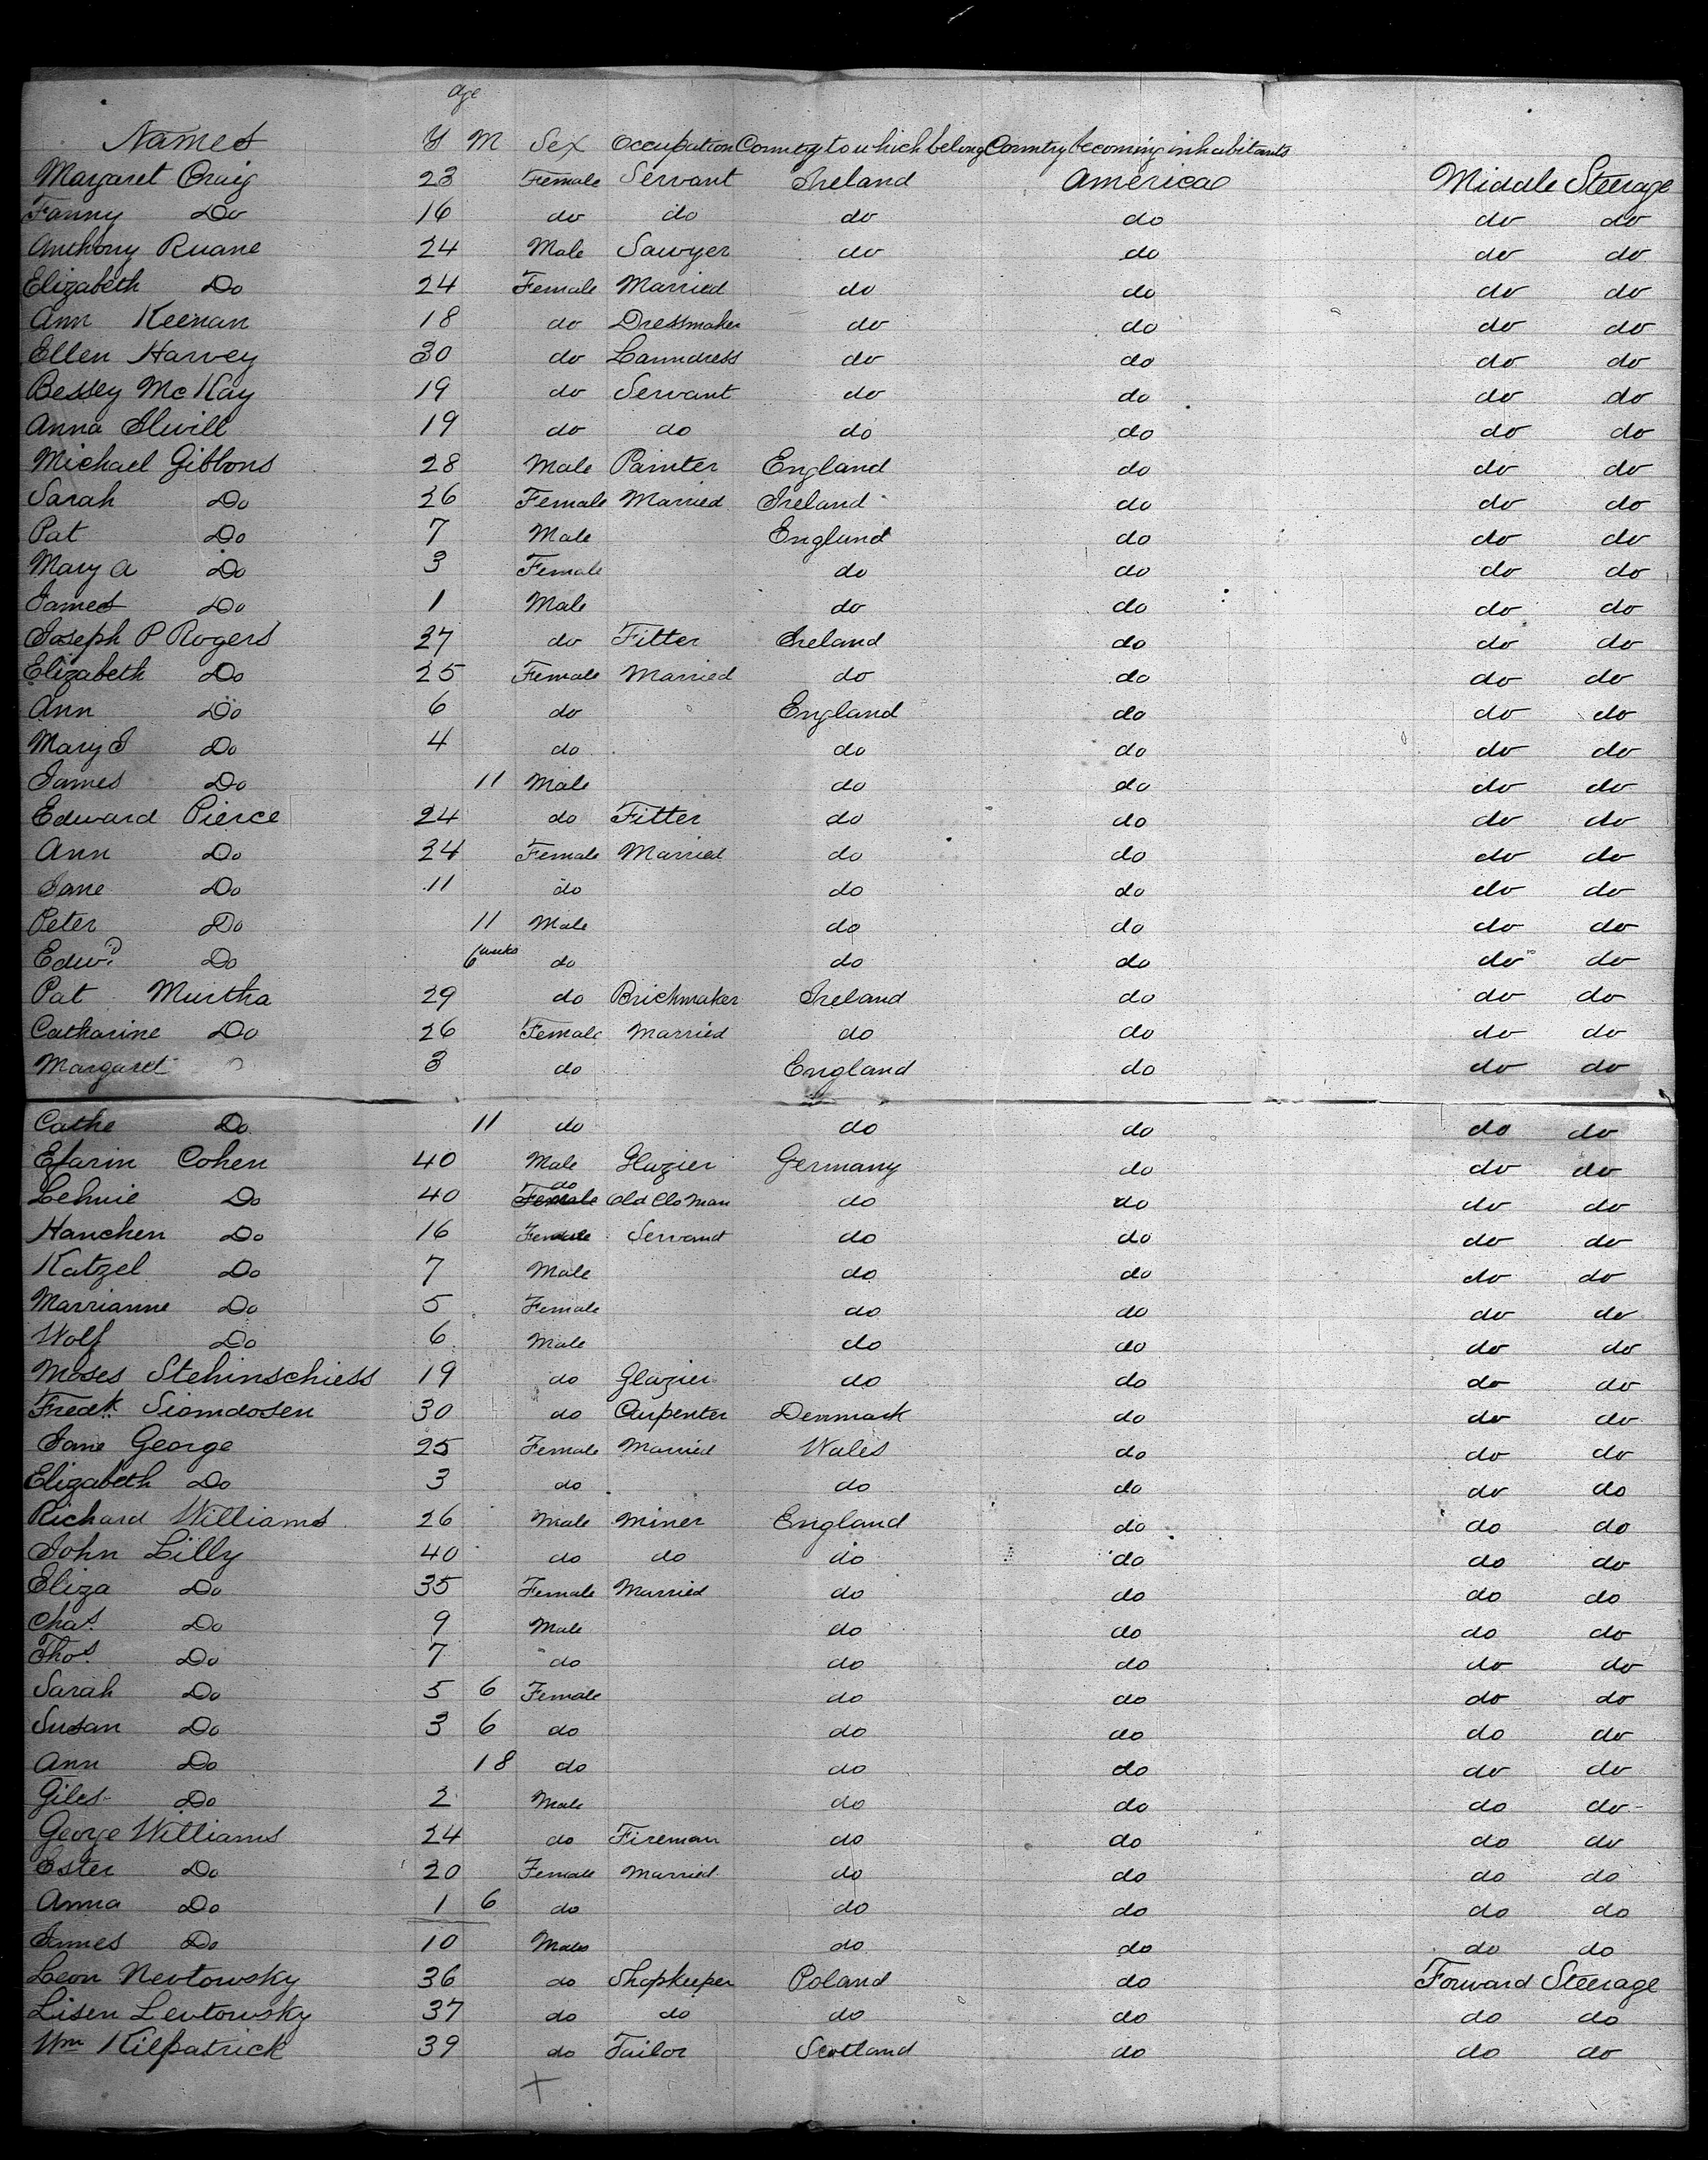 age
Names Y M Sex Occupation Country to which belong Country becoming inhabitants
Margaret Craig 23 Female Servant Ireland America Middle Steerage
Fanny Do 16 do do do do do do
Anthony Ruane 24 Male Sawyer do do do do
Elizabeth Do 24 Female Married do do do do
Ann Keenan 18 do Dressmaker do do do do
Ellen Harvey 30 do Laundress do do do do
Bessey McKay 19 do Servant do do do do
Anna 19 do do do do do do
Michael Gibbons 28 Male Painter England do do do
Sarah Do 26 Female Married Ireland do do do
Pat Do 7 Male England do do do
Mary A Do 3 Female do do do do
James Do 1 Male do do do do
Joseph P Rogers 27 do Fitter Ireland do do do
Elizabeth Do 25 Female Married do do do do
Ann Do 6 do England do do do
Mary J Do 4 do do do do do
James Do 11 Male do do do do
Edward Pierce 24 do Fitter do do do do
Ann Do 24 Female Married do do do do
Jane Do 11 do do do do do
Peter Do 11 Male do do do do
Edwd Do 6 weeks do do do do do
Pat Murtha 29 do Brickmaker Ireland do do do
Catharine Do 26 Female Married do do do do
Margaret 3 do England do do do
Cathe Do 11 do do do do do
Efarin Cohen 40 Male Glazier Germany do do do
Lehnie Do 40 Female do Old Clo Man do do do do
Hanchen Do 16 Female Servant do do do do
Katzel Do 7 Male do do do do
Marrianne Do 5 Female do do do do
Wolf Do 6 Male do do do do
Moses Stehinschiess 19 do Glazier do do do do
Fredk Siomdosen 30 do Carpenter Denmark do do do
Jane George 25 Female Married Wales do do do
Elizabeth Do 3 do do do do do
Richard Williams 26 Male Miner England do do do
John Lilly 40 do do do do do do
Eliza Do 35 Female Married do do do do
Chas. Do 9 Male do do do do
Thos. Do 7 do do do do do
Sarah Do 5 6 Female do do do do
Susan Do 3 6 do do do do do
Ann Do 18 do do do do do
Giles Do 2 Male do do do do
George Williams 24 do Fireman do do do do
Ester Do 20 Female Married do do do do
Anna Do 1 6 do do do do do
James Do 10 Male do do do do
Leon Nevtowsky 36 do Shopkeeper Poland do Forward Steerage
Lisen Levtowsky 37 do do do do do do
Wm Kilpatrick 39 do Tailor Scotland do do do